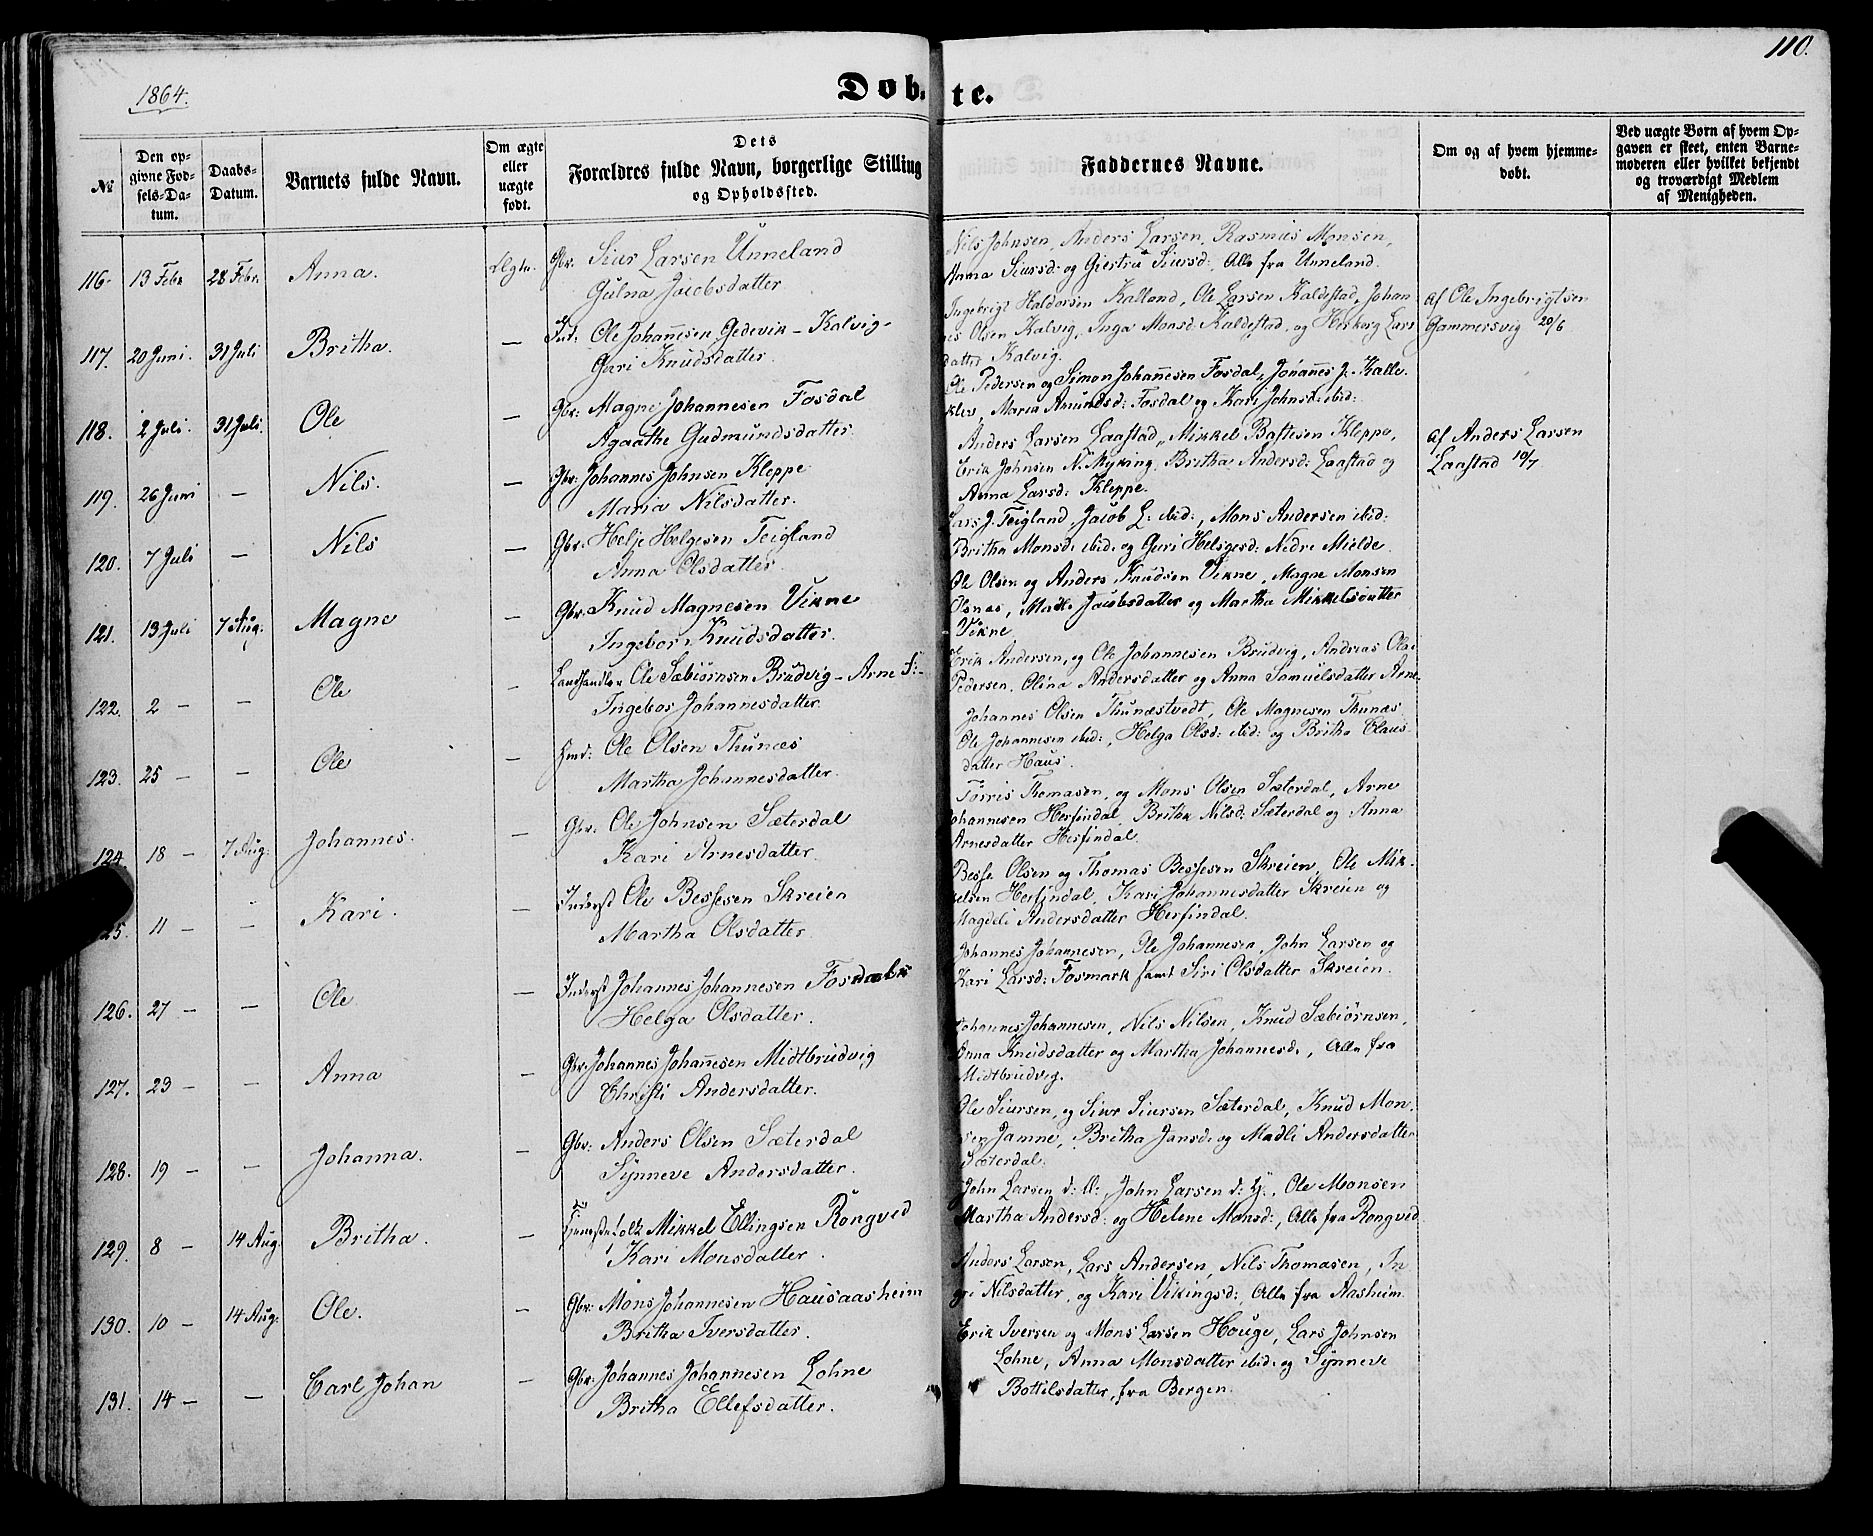 110.
1864.
Døbte.
№
Den opgivne Fødsels-Datum.
Daabs-Datum.
Barnets fulde Navn.
Om ægte eller uægte født.
Dets Forældres fulde Navn, borgerlige Stilling og Opholdssted.
Faddernes Navne.
Om og af hvem hjemmedøbt.
Ved uægte Børn af hvem Opgaven er skeet, enten Barnemoderen eller hvilket bekjendt og troværdigt Medlem af Menigheden.
116. 13 Febr 28 Febr. Anna. Ægte. Gbr. Siur Larsen Unneland
Gulna Jacobsdatter
Nils Johnsen, Anders Larsen, Rasmus Monsen,
Anna Siursd: og Giertru Siursd:, Alle fra Unneland.
117. 20 Juni. 31 Juli Britha. — Ind: Ole Johannesen Gedevik - Kalvig -
Guri Knudsdatter.
Ingebrigt Haldorsen Kalland, Ole Larsen Kaldestad, Johan
nes Olsen Kalvig, Inga Monsd: Kaldestad, og Herborg Lars
datter Kalvig.
af Ole Ingebrigtsen
Gammersvig 20/6
118. 2 Juli. 31 Juli. Ole — Gbr: Magne Johannesen Fosdal
Agaathe Gudmundsdatter
Ole Pedersen og Simon Johannesen Fosdal, Johannes J: Kalle
klev, Maria Amundsd: Fosdal og Kari Johnsd: ibid:
119. 26 Juni — Nils. — Gbr: Johannes Johnsen Kleppe
Maria Nilsdatter.
Anders Larsen Laastad, Mikkel Baftesen Kleppe,
Erik Johnsen N. Myking, Britha Andersd: Laastad og
Anna Larsd: Kleppe.
af Anders Larsen
Laastad 10/7
120. 7 Juli — Nils — Gbr. Helje Helgesen Teigland
Anna Olsdatter
Lars J. Teigland, Jacob L: ibid:, Mons Andersen ibid:
Britha Monsd: ibid: og Guri Helgesd: Nedre Mielde
121. 13 Juli 7 Aug: Magne — Gbr. Knud Magnesen Vikne
Ingebor Knudsdatter.
Ole Olsen og Anders Knudsen Vikne, Magne Monsen
Osnas, Madli Jacobsdatter og Martha Mikkelsdatter
Vikne
122. 2 — — Ole — Landhandler Ole Sæbiørnsen Brudvig - Arne F: -
Ingebor Johannesdatter.
Erik Andersen, og Ole Johannesen Brudvig, Andreas Olai
Pedersen, Olina Andersdatter og Anna Samuelsdatter Arne
123. 25 — — Ole — Hmd: Ole Olsen Thunæs
Martha Johannesdatter.
Johannes Olsen Thunæstvedt, Ole Magnesen Thunæs
Ole Johannesen ibid:, Helga Olsd: ibid: og Britha Claus
datter Haus.
124. 18 — 7 Aug: Johannes. — Gbr: Ole Johnsen Sæterdal
Kari Arnesdatter.
Torris Thomasen, og Mons Olsen Sæterdal, Arne
Johannesen Herfindal, Britha Nilsd: Sæterdal og Anna
Arnesdatter Herfindal.
125. 11 — — Kari. — Inderst Ole Bessesen Skreien
Martha Olsdatter
Besse Olsen og Thomas Bessesen Skreien, Ole Mik
kelsen Herfindal, Kari Johannesdatter Skreien og
Magdeli Andersdatter Herfindal.
126. 27 — — Ole — Inderst Johannes Johannesen
Helga Olsdatter.
Johannes Johannesen, Ole Johannesen, John Larsen og
Kari Larsd: Fosmark samt Siri Olsdatter Skreien.
127. 23 — — Anna — Gbr. Johannes Johannesen Midtbrudvig
Christi Andersdatter.
Johannes Johannesen, Nils Nilsen, Knud Sæbiørnsen,
Anna Knudsdatter og Martha Johannesd:, Alle fra
Midtbrudvig.
128. 19 — — Johanna. — Gbr: Anders Olsen Sæterdal
Synneve Andersdatter.
Ole Siursen, og Siur Siursen Sæterdal, Knud Mon
sen Jamne, Britha Jansd: og Madli Andersdatter
Sæterdal.
129. 8 — 14 Aug: Britha. — Mikkel Ellingsen Rongved
Kari Monsdatter.
John Larsen d: Æ:, John Larsen d: Y:, Ole Monsen
Martha Andersd: og Helene Monsd:, Alle fra Rongved
130. 10 — 14 Aug: Ole. — Gbr: Mons Johannesen Hausaasheim
Britha Iversdatter.
Anders Larsen, Lars Andersen, Nils Thomasen, In
gri Nilsdatter, og Kari Vikingsd:, Alle fra Aasheim.
131. 14 — — Carl Johan — Gbr: Johannes Johannesen Lohne
Britha Ellefsdatter.
Erik Iversen og Mons Larsen Houge, Lars Johnsen
Lohne, Anna Monsdatter ibid: og Synneve
Bottilsdatter, fra Bergen.